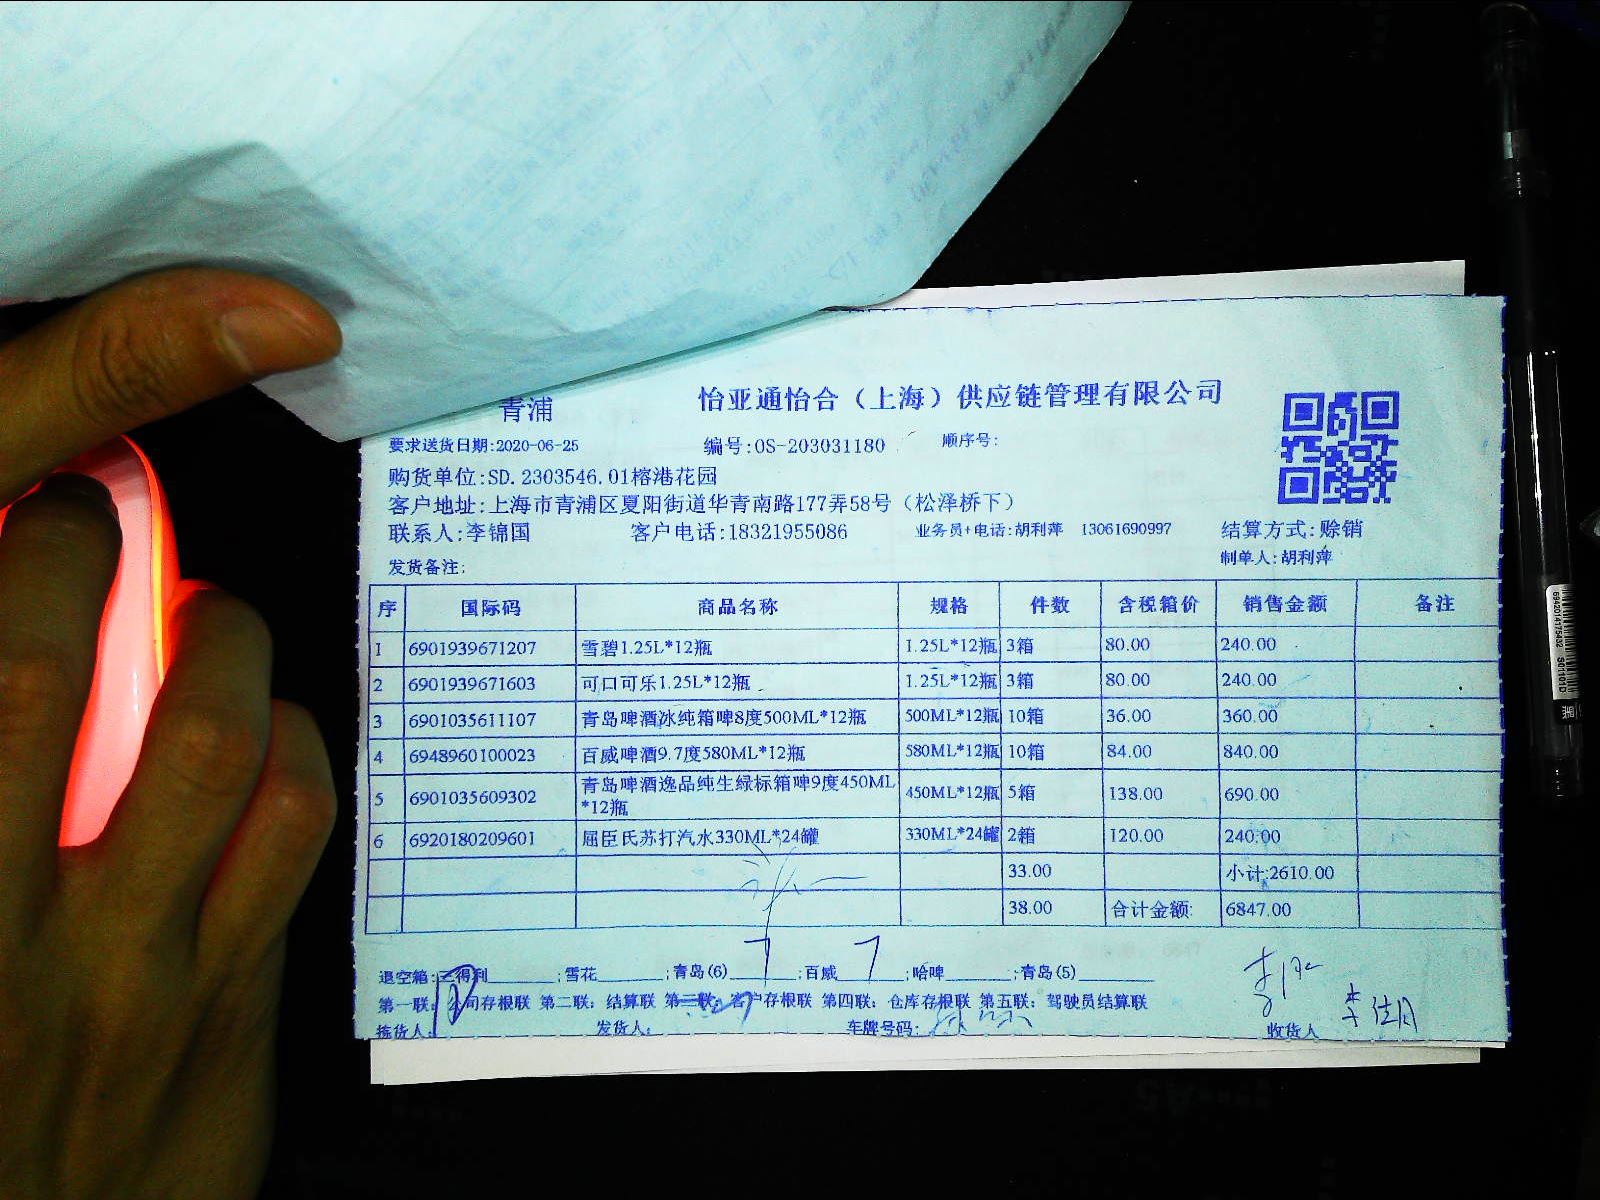 青浦 怡亚通怡合（上海）供应链管理有限公司
要求送货日期:2020-06-25 编号:OS-203031180 顺序号:
购货单位:SD.2303546.01榕港花园
客户地址:上海市青浦区夏阳街道华青南路177弄58号（松泽桥下）
联系人:李锦国 客户电话:18321955086 业务员+电话:胡利萍 13061690997 结算方式:赊销
发货备注: 制单人:胡利萍
序 国际码 商品名称 规格 件数 含税箱价 销售金额 备注
1 6901939671207 雪碧1.25L*12瓶 1.25L*12瓶 3箱 80.00 240.00
2 6901939671603 可口可乐1.25L*12瓶 1.25L*12瓶 3箱 80.00 240.00
3 6901035611107 青岛啤酒冰纯箱啤8度500ML*12瓶 500ML*12瓶 10箱 36.00 360.00
4 6948960100023 百威啤酒9.7度580ML*12瓶 580ML*12瓶 10箱 84.00 840.00
5 6901035609302 青岛啤酒逸品纯生緑标箱啤9度450ML*12瓶 450ML*12瓶 5箱 138.00 690.00
6 6920180209601 屈臣氏苏打汽水330ML*24罐 330ML*24罐 2箱 120.00 240.00
33.00 小计:2610.00
38.00 合计金额: 6847.00
退空箱:三得利______;雪花______;青岛(6)__7__;百威__7__;哈啤______;青岛(5)______
第一联：公司存根联 第二联：结算联 第三联：客户存根联 第四联：仓库存根联 第五联：驾驶员结算联
拣货人: 发货人: 车牌号码: 收货人
6942014175432 S01101D